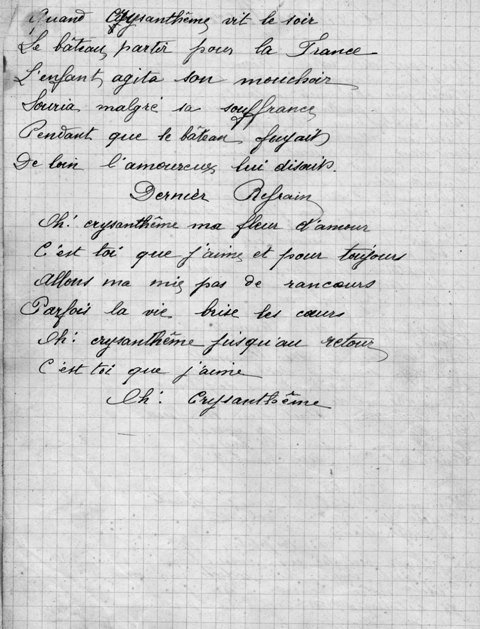 Quand Crysanthême vit le soir
Le bâteau partir pour la France
L'enfant agita son mouchoir
Souria malgré sa souffrance
Pendant que le bâteau fuyait
De loin l'amoureux lui disait.
Dernièr Refrain
Oh! crysanthême ma fleur d'amour
C'est toi que j'aime et pour toujours
Allons ma mie pas de rancœurs
Parfois la vie brise les cœurs
Oh! crysanthême jusqu'au retour
C'est toi que j'aime
Oh! Crysanthême